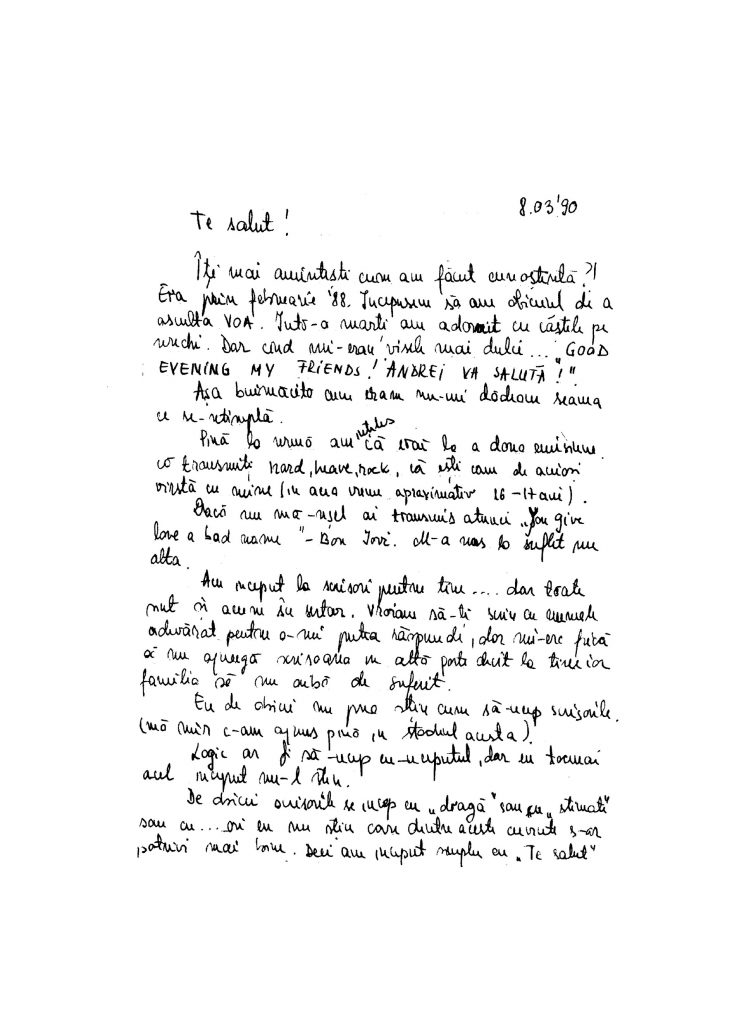 8.03'90
Te salut!
Îţi mai amintesti cum am făcut cunoştinţă?!
Era prin februarie '88. Incepusem să am obiceiul de a
asculta VOA. Intr-o marti am adormit cu căstile pe
urechi. Dar cind mi-erau visele mai dulci... „GOOD
EVENING MY FRIENDS! ANDREI VA SALUTĂ!"
Aşa buimăcită cum eram nu-mi dădeam seama
ce se-ntimplă.
Pină la urmă am înteles că erai la a doua emisiune
că transmiti hard, heave, rock, că esti cam de aceiasi
virstă cu mine (in acea vreme aproximativ 16-17 ani).
Dacă nu mă-nsel ai transmis atunci „You give
love a bad name" - Bon Jovi. M-a uns la suflet nu
alta.
Am inceput la scrisori pentru tine .... dar toate
sunt si acum in sertar. Vroiam să-ti scriu cu numele
adevărat pentru a-mi putea răspunde, dar mi-era frică
că nu ajungă scrisoarea in altă parte decit la tine iar
familia să nu aibă de suferit.
Eu de obicei nu prea stiu cum să-ncep scrisorile.
(mă mir c-am ajuns pină in stadiul acesta).
Logic ar fi să-ncep cu-nceputul, dar eu tocmai
acel inceput nu-l stiu.
De obicei scrisorile se incep cu „dragă" sau cu „stimate"
sau cu.... ori eu nu stiu care dintre aceste cuvinte s-ar
potrivi mai bine. Deci am inceput simplu cu „Te salut"